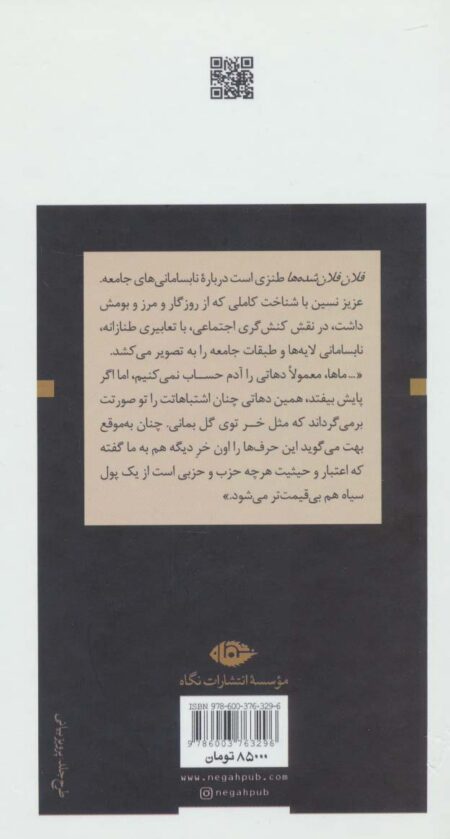 فلان فلان‌شده‌ها طنزی است دربارهٔ نابسامانی‌های جامعه.
عزیز نسین با شناخت کاملی که از روزگار و مرز و بومش
داشت، در نقش کنش‌گری اجتماعی، با تعابیری طنازانه،
نابسامانی لایه‌ها و طبقات جامعه را به تصویر می‌کشد.
«... ماها، معمولاً دهاتی را آدم حساب نمی‌کنیم، اما اگر
پایش بیفتد، همین دهاتی چنان اشتباهاتت را تو صورتت
برمی‌گرداند که مثل خر توی گل بمانی. چنان به‌موقع
بهت می‌گوید این حرف‌ها را اون خر دیگه هم به ما گفته
که اعتبار و حیثیت هرچه حزب و حزبی است از یک پول
سیاه هم بی‌قیمت‌تر می‌شود.»
مؤسسهٔ انتشارات نگاه
ISBN 978-600-376-329-6
9786003763296
۸۵۰۰۰ تومان
www.negahpub.com
negahpub
طرح جلد: پرویز بیانی